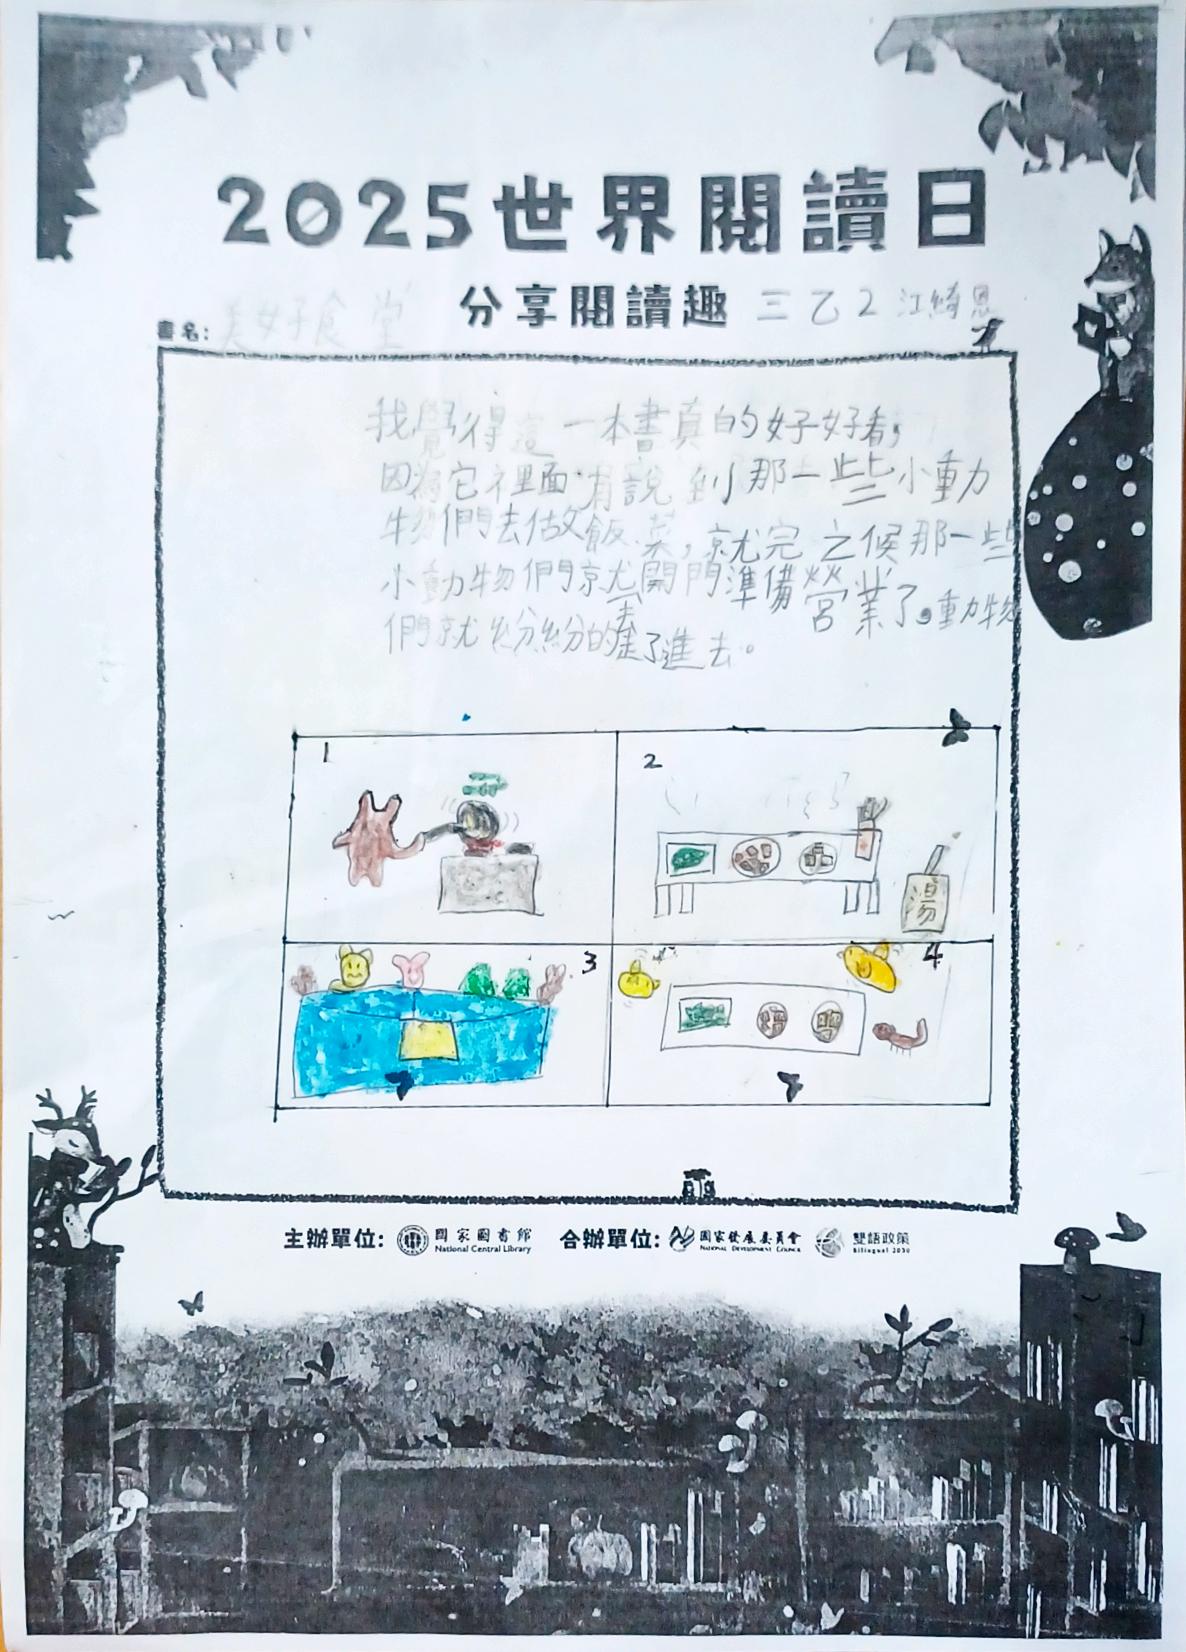 2025世界閱讀日
分享閱讀趣 三乙2江綺恩
書名: 美好食堂
我覺得這一本書真的好好看,
因為它裡面有說到那一些小動
物們去做飯菜,就完之候那一些
小動物們就開門準備營業了。動物
們就紛紛的走了進去。
1
2
湯
3
4
主辦單位: 國家圖書館 National Central Library 合辦單位: 國家發展委員會 National Development Council 雙語政策 Bilingual 2030